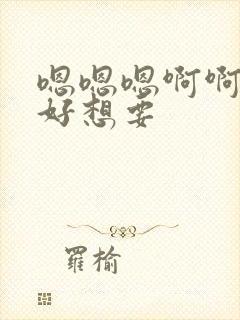 嗯嗯嗯啊啊
好想要
羅榆